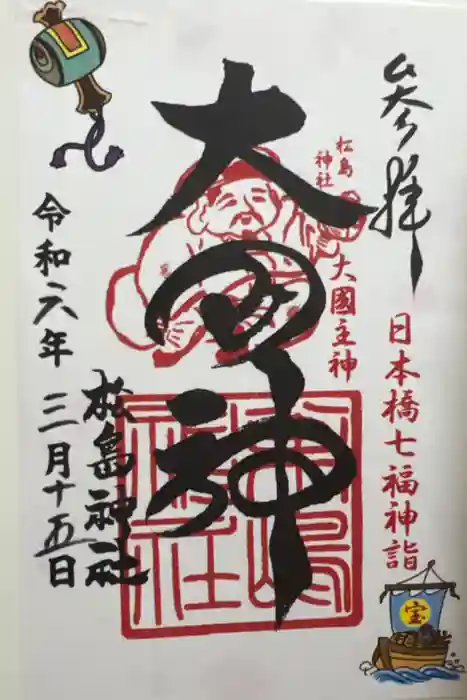 参拝
日本橋七福神詣
宝
松島
神社
大國主神
大国神
松島神社
松島神社
令和六年 三月十五日